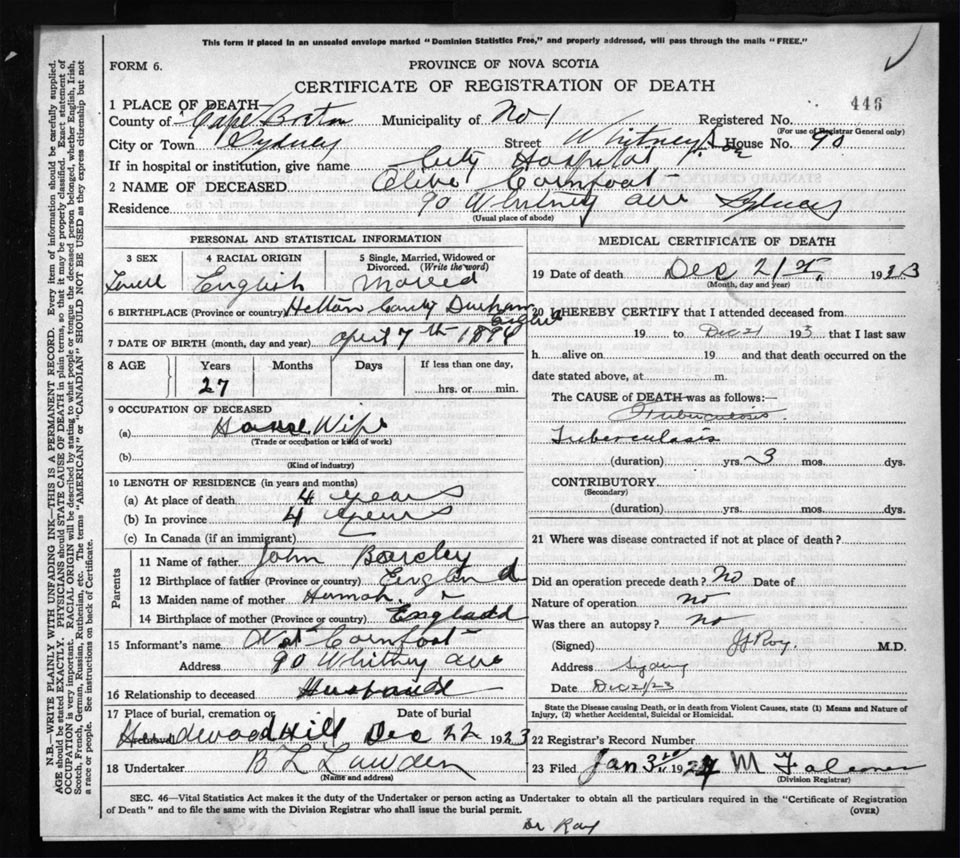 This form if placed in an unsealed envelope marked "Dominion Statistics Free," and properly addressed, will pass through the mails "FREE."
FORM 6.
PROVINCE OF NOVA SCOTIA
CERTIFICATE OF REGISTRATION OF DEATH
446
1 PLACE OF DEATH—
County of Cape Breton Municipality of No 1 Registered No.
(For use of Registrar General only)
City or Town Sydney Street Whitney Ave House No. 90
If in hospital or institution, give name City Hospital
2 NAME OF DECEASED Olive Cornfoot
Residence 90 Whitney ave Sydney
(Usual place of abode)
PERSONAL AND STATISTICAL INFORMATION
3 SEX 4 RACIAL ORIGIN 5 Single, Married, Widowed or Divorced. (Write the word)
English
6 BIRTHPLACE (Province or country) Hetton County Durham
7 DATE OF BIRTH (month, day and year) April 7th
8 AGE Years Months Days If less than one day,
27 hrs. or min.
9 OCCUPATION OF DECEASED
(a) House Wife
(Trade or occupation or kind of work)
(b)
(Kind of industry)
10 LENGTH OF RESIDENCE (in years and months)
(a) At place of death 4 years
(b) In province 4 years
(c) In Canada (if an immigrant)
Parents
11 Name of father John
12 Birthplace of father (Province or country) England
13 Maiden name of mother
14 Birthplace of mother (Province or country) Engladd
15 Informant's name Cornfoot
Address 90 Whitney ave
16 Relationship to deceased Husband
17 Place of burial, cremation or Date of burial
Hardwood Hill Dec 22 1923
18 Undertaker B L
(Name and address)
MEDICAL CERTIFICATE OF DEATH
19 Date of death Dec 21st, 1923
(Month, day and year)
20 I HEREBY CERTIFY that I attended deceased from
19 to Dec 21 1923 that I last saw
h alive on 19 and that death occurred on the
date stated above, at m.
The CAUSE of DEATH was as follows:
Tuberculosis
Tuberculosis
(duration) yrs. 3 mos. dys.
CONTRIBUTORY.
(Secondary)
(duration) yrs. mos. dys.
21 Where was disease contracted if not at place of death?
Did an operation precede death? No Date of
Nature of operation no
Was there an autopsy? no
(Signed) Roy. M.D.
Address Sydney
Date Dec 21/23
State the Disease causing Death, or in death from Violent Causes, state (1) Means and Nature of
Injury, (2) whether Accidental, Suicidal or Homicidal.
22 Registrar's Record Number
23 Filed Jan 3 1924 M
(Division Registrar)
SEC. 46—Vital Statistics Act makes it the duty of the Undertaker or person acting as Undertaker to obtain all the particulars required in the "Certificate of Registration
of Death" and to file the same with the Division Registrar who shall issue the burial permit. (OVER)
Dr Roy
N.B.—WRITE PLAINLY WITH UNFADING INK—THIS IS A PERMANENT RECORD. Every item of information should be carefully supplied.
AGE should be stated EXACTLY. PHYSICIANS should STATE CAUSE OF DEATH in plain terms, so that it may be properly classified. Exact statement of
OCCUPATION is very important. RACIAL ORIGIN will be described by stating to what people or tongue the deceased person belonged, whether English, Irish,
Scotch, French, German, Russian, Ruthenian, etc. The terms "AMERICAN" or "CANADIAN" SHOULD NOT BE USED as they express citizenship but not
a race or people. See instructions on back of Certificate.